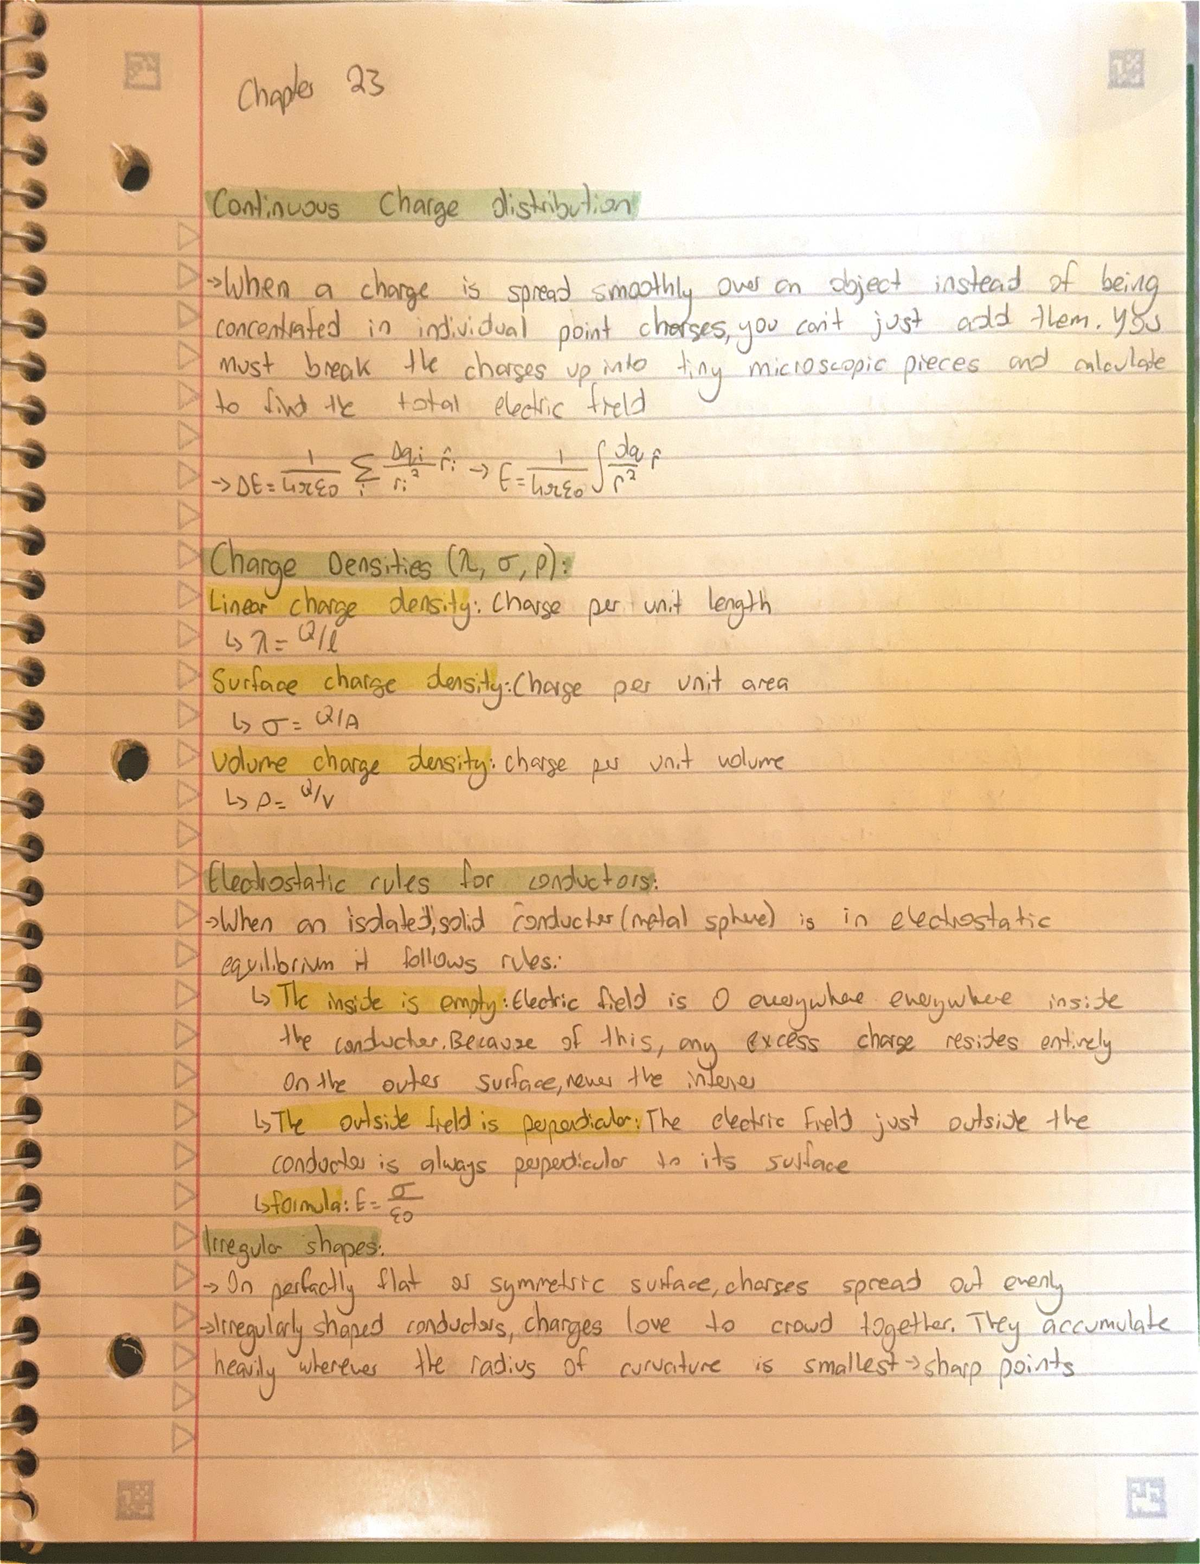 Chapter 23
Continuous Charge distribution
→When a charge is spread smoothly over an object instead of being
concentrated in individual point charges, you can't just add them. You
must break the charges up into tiny microscopic pieces and calculate
to find the total electric field
→ΔE = 1/4πε0 Σi Δqi/ri² r̂i → E = 1/4πε0 ∫ dq/r² r̂
Charge Densities (λ, σ, ρ):
Linear charge density: Charge per unit length
↳ λ = Q/l
Surface charge density: Charge per unit area
↳ σ = Q/A
Volume charge density: charge per unit volume
↳ ρ = Q/V
Electrostatic rules for conductors:
→When an isolated, solid conductor (metal sphere) is in electrostatic
equilibrium it follows rules:
↳ The inside is empty: Electric field is 0 everywhere everywhere inside
the conductor. Because of this, any excess charge resides entirely
on the outer surface, never the interer
↳ The outside field is perpendicular: The electric field just outside the
conductor is always perpendicular to its surface
↳ formula: E = σ/ε0
Irregular shapes:
→ On perfectly flat or symmetric surface, charges spread out evenly
→Irregularly shaped conductors, charges love to crowd together. They accumulate
heavily wherever the radius of curvature is smallest → sharp points